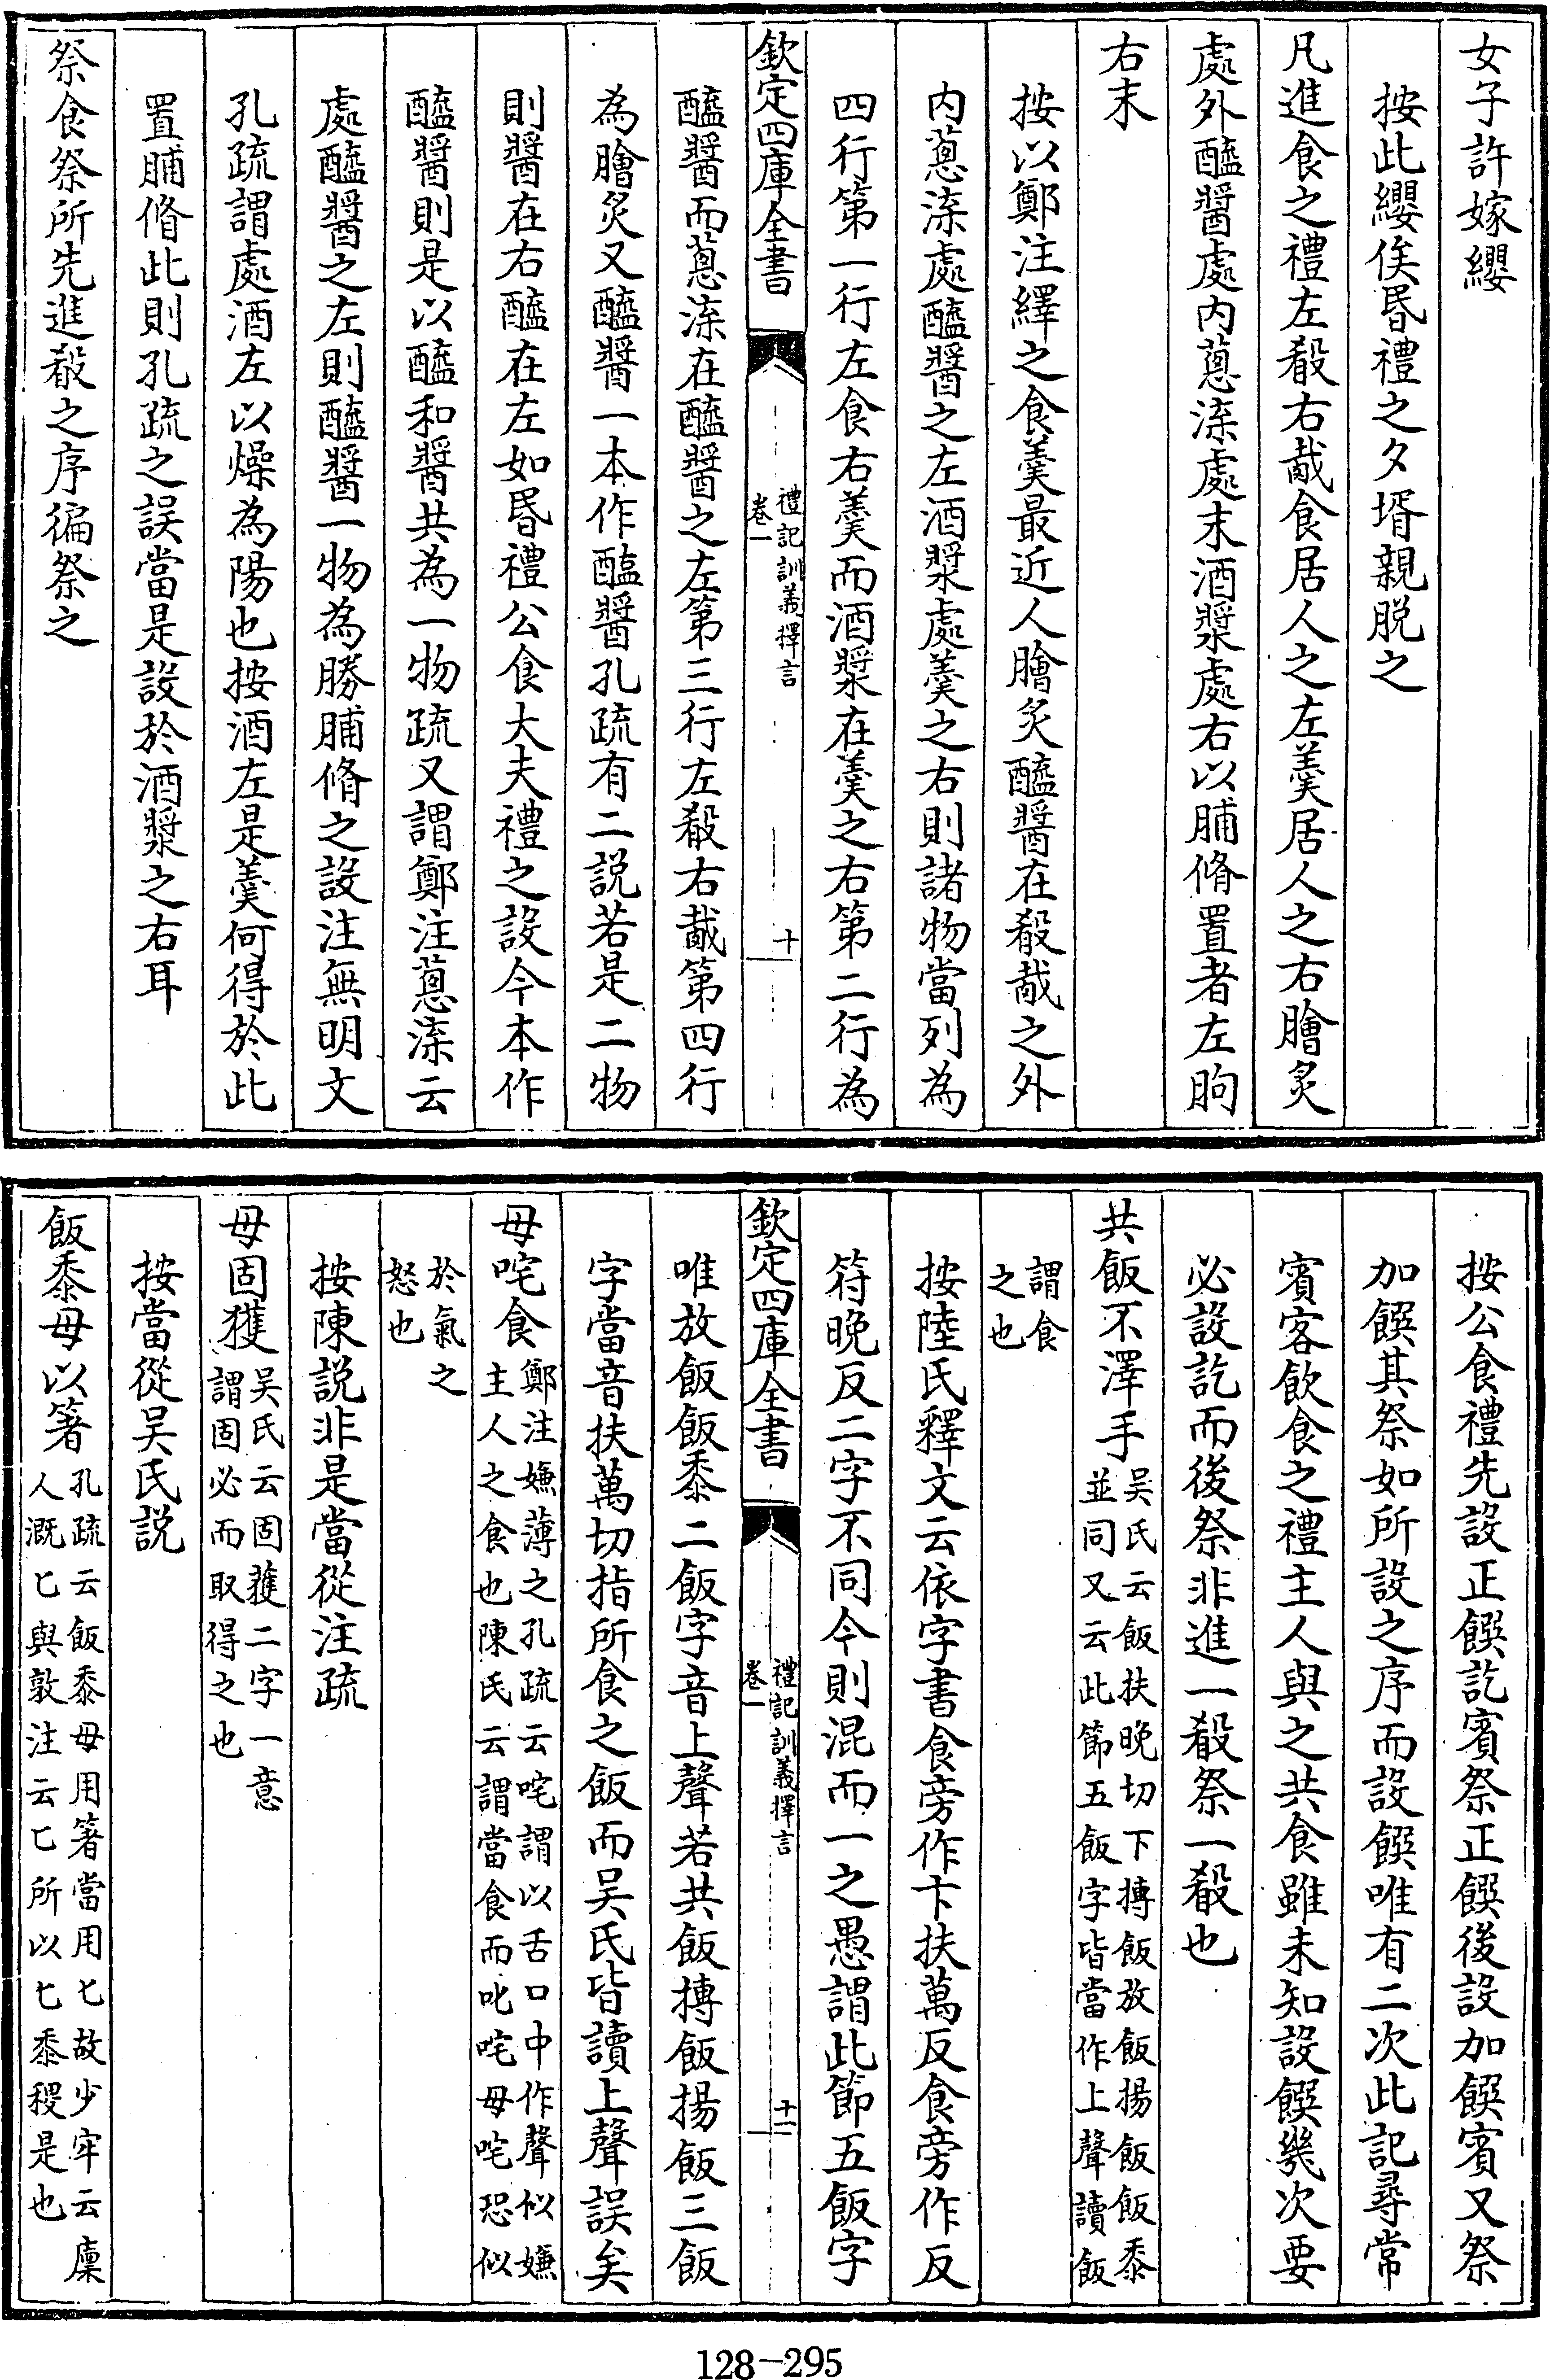 女子許嫁纓
按此纓俟昬禮之夕壻親脱之
凡進食之禮左殽右胾食居人之左羹居人之右膾炙
處外醯醬處内蔥渿處末酒漿處右以脯脩置者左朐
右末
按以鄭注繹之食羹最近人膾炙醯醬在殽胾之外
内蔥渿處醯醬之左酒漿處羹之右則諸物當列為
四行第一行左食右羹而酒漿在羹之右第二行為
欽定四庫全書
禮記訓義擇言
卷一
十
醯醬而蔥渿在醯醬之左第三行左殽右胾第四行
為膾炙又醯醬一本作醢醬孔疏有二説若是二物
則醬在右醯在左如昬禮公食大夫禮之設今本作
醯醬則是以醯和醬共為一物疏又謂鄭注蔥渿云
處醯醬之左則醯醬一物為勝脯脩之設注無明文
孔疏謂處酒左以燥為陽也按酒左是羹何得於此
置脯脩此則孔疏之誤當是設於酒漿之右耳
祭食祭所先進殽之序徧祭之
按公食禮先設正饌訖賓祭正饌後設加饌賓又祭
加饌其祭如所設之序而設饌唯有二次此記尋常
賓客飲食之禮主人與之共食雖未知設饌幾次要
必設訖而後祭非進一殽祭一殽也
共飯不澤手吴氏云飯扶晚切下摶飯放飯揚飯飯黍
並同又云此節五飯字皆當作上聲讀飯
謂食
之也
按陸氏釋文云依字書食旁作卞扶萬反食旁作反
符晚反二字不同今則混而一之愚謂此節五飯字
欽定四庫全書
禮記訓義擇言
卷一
十一
唯放飯飯黍二飯字音上聲若共飯摶飯揚飯三飯
字當音扶萬切指所食之飯而吴氏皆讀上聲誤矣
毋咤食鄭注嫌薄之孔疏云咤謂以舌口中作聲似嫌
主人之食也陳氏云謂當食而叱咤毋咤恐似
於氣之
怒也
按陳説非是當從注疏
毋固獲吴氏云固獲二字一意
謂固必而取得之也
按當從吴氏説
飯黍毋以箸孔疏云飯黍毋用箸當用匕故少牢云廩
人溉匕與敦注云匕所以匕黍稷是也
128-295